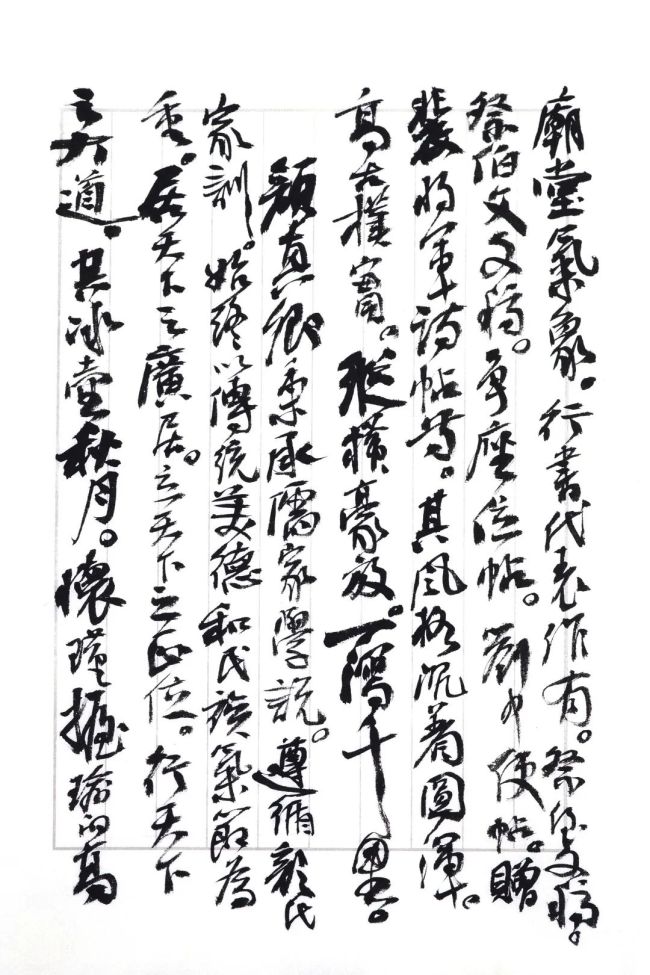 廟堂氣象。行書代表作有。祭侄文稿。
祭伯父文稿。爭座位帖。劉中使帖。贈
裴將軍詩帖等。其風格沉着圓渾。
高古樸實。縱橫豪放。一瀉千里。
顏真卿秉承儒家學説。遵循顏氏
家訓。始終以傳統美德和民族氣節為
重。居天下之廣居。立天下之正位。行天下
之大道。其冰壺秋月。懷瑾握瑜的高